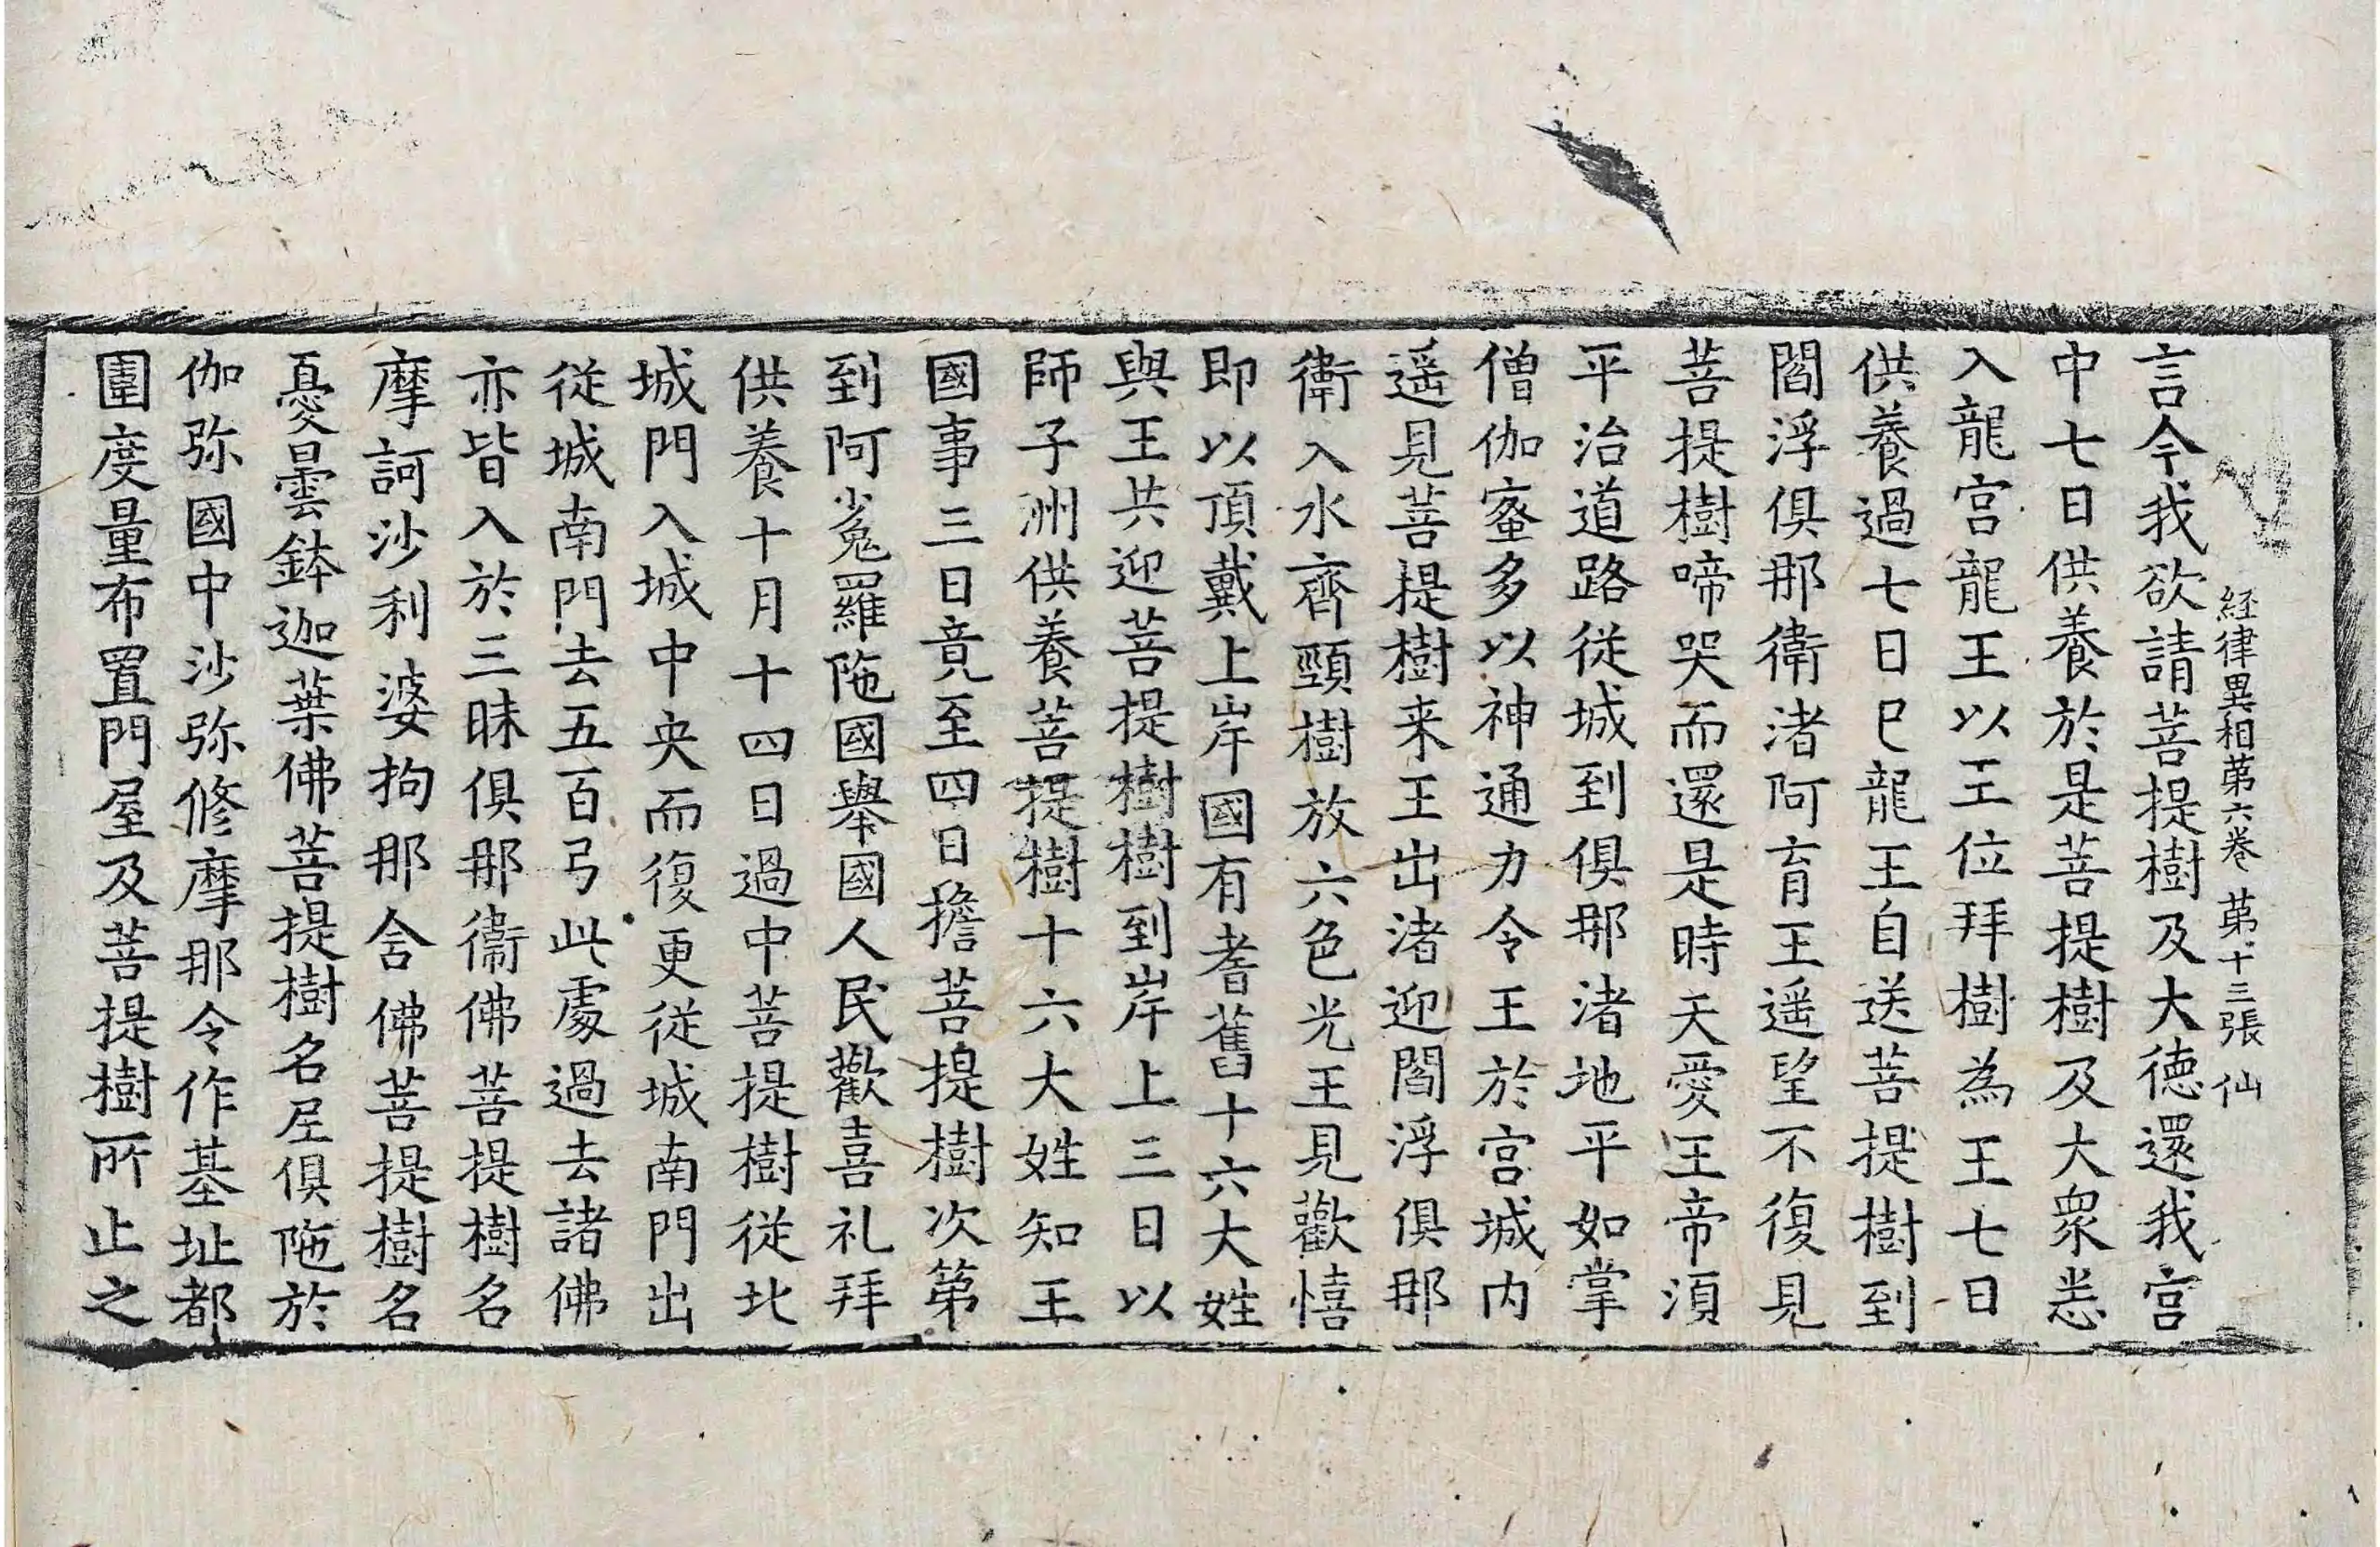 経律異相苐六卷 苐十三張 仙
言今我欲請菩提樹及大徳還我宮
中七日供養於是菩提樹及大衆悉
入龍宮龍王以王位拜樹為王七日
供養過七日已龍王自送菩提樹到
閻浮俱那衛渚阿育王遥望不復見
菩提樹啼哭而還是時天愛王帝湏
平治道路従城到俱那渚地平如掌
僧伽蜜多以神通力令王於宮城内
遥見菩提樹来王出渚迎閻浮俱那
衛入水齊頸樹放六色光王見歡憘
即以頂戴上岸國有耆舊十六大姓
與王共迎菩提樹樹到岸上三日以
師子洲供養菩提樹十六大姓知王
國事三日竟至四日擔菩提樹次第
到阿㝹羅陁國舉國人民歡喜礼拜
供養十月十四日過中菩提樹従北
城門入城中央而復更従城南門出
従城南門去五百弓此處過去諸佛
亦皆入於三昧俱那衞佛菩提樹名
摩訶沙利婆拘那含佛菩提樹名
憂曇鉢迦葉佛菩提樹名𡰱俱陁於
伽弥國中沙弥修摩那令作基址都
圍度量布置門屋及菩提樹所止之